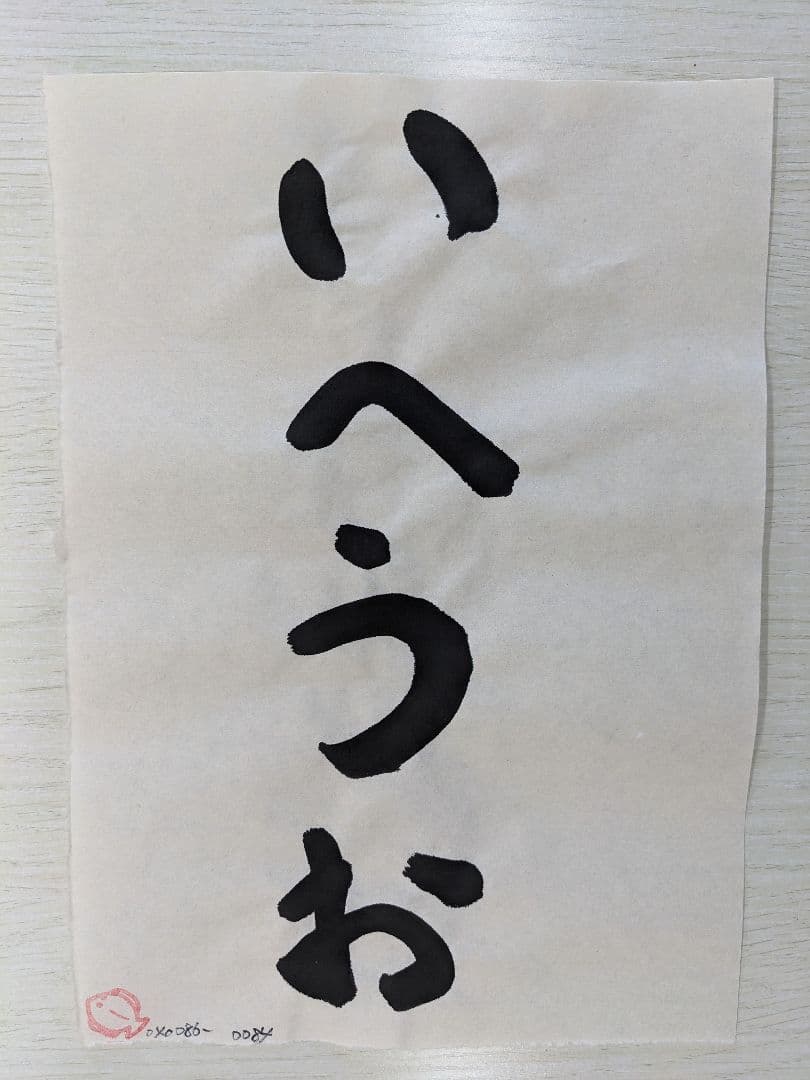 いへうお
0x0086- 0084